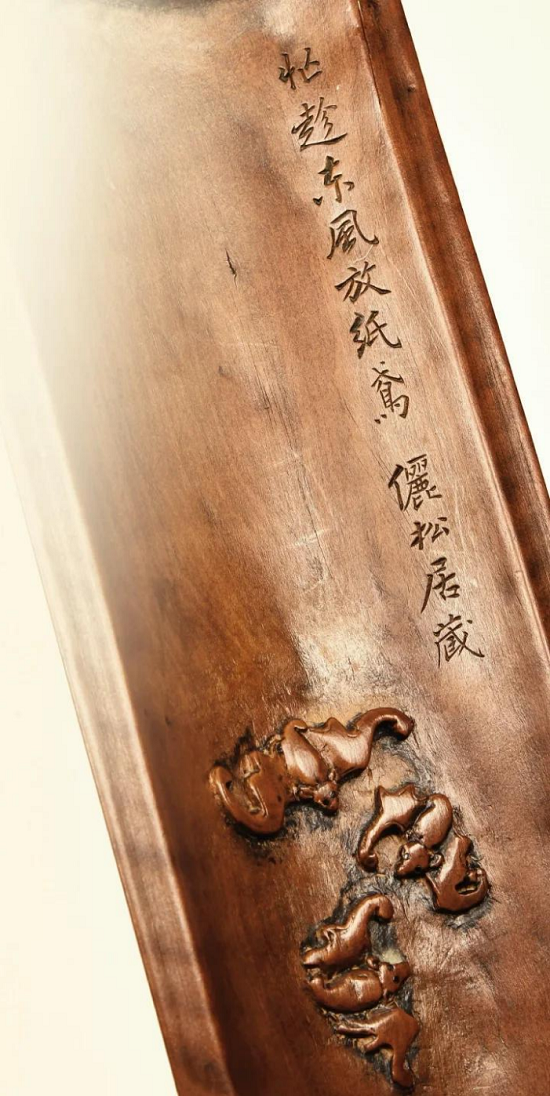 忙趂东風放紙鳶 儷松居藏